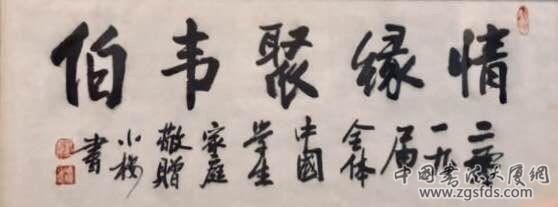 情缘聚韦伯
二零
一九
届
全体
中国
学生
家庭
敬赠
小梅
書
中国书法大厦网
www.zgsfds.com